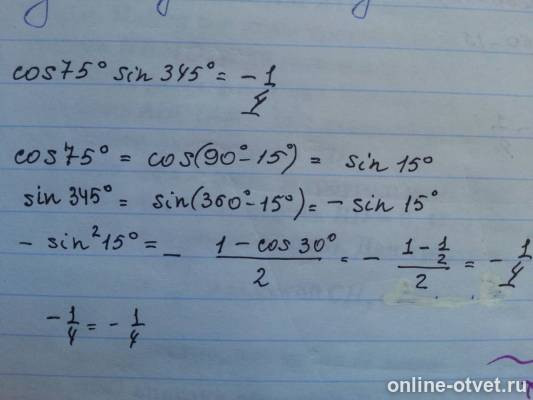 cos75° sin 345° = - 1/4
cos75° = cos(90° - 15°) = sin 15°
sin 345° = sin(360° - 15°) = - sin 15°
- sin²15° = - (1 - cos 30°)/2 = - (1 - 1/2)/2 = - 1/4
- 1/4 = - 1/4
online-otvet.ru